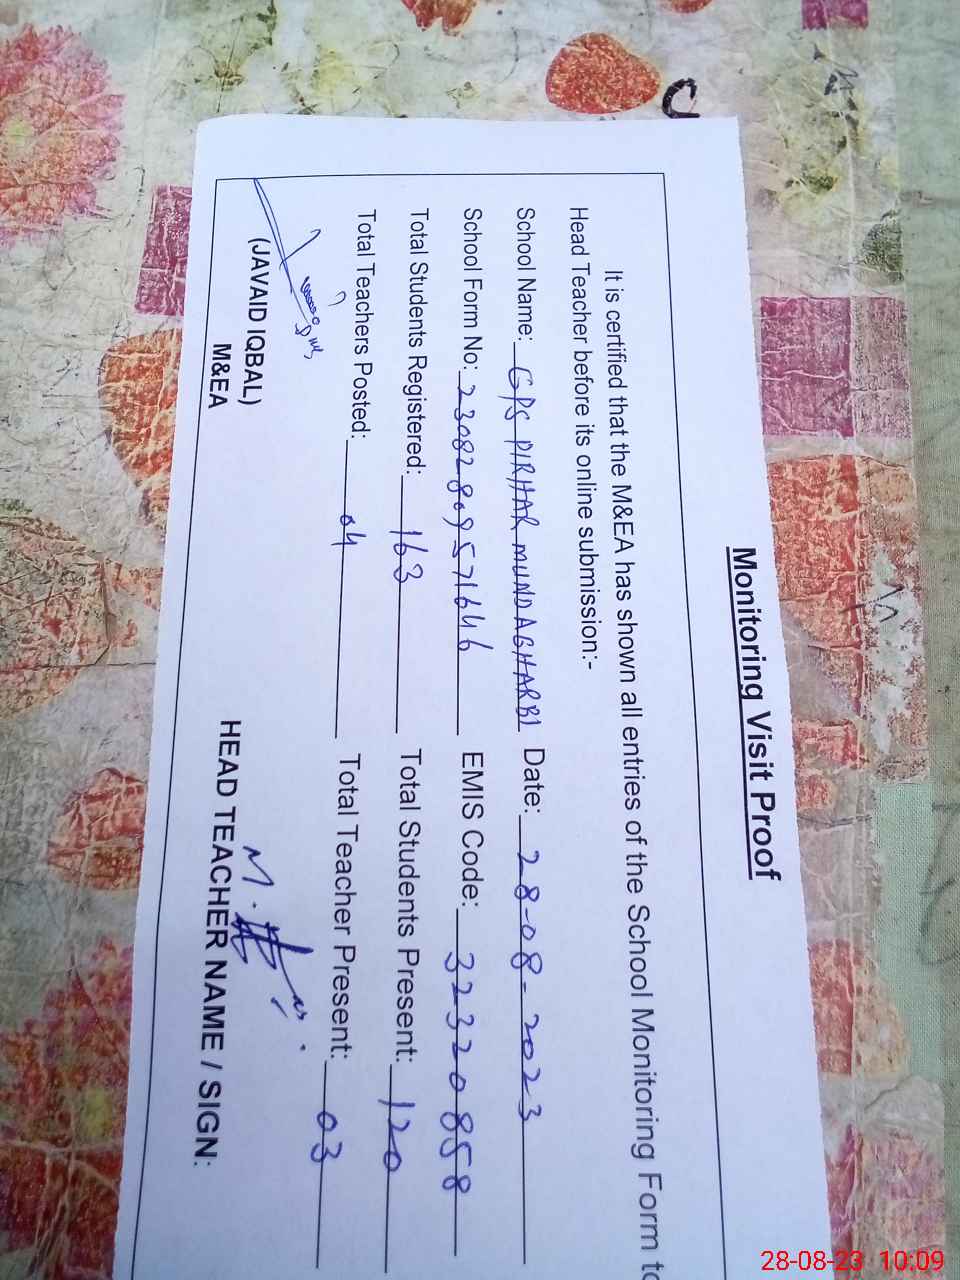 Monitoring Visit Proof
It is certified that the M&EA has shown all entries of the School Monitoring Form to
Head Teacher before its online submission:-
School Name: GPS PIRHAR MUNDA GHARBI Date: 28-08-2023
School Form No: 23082809571646 EMIS Code: 32320858
Total Students Registered: 163 Total Students Present: 120
Total Teachers Posted: 04 Total Teacher Present: 03
(JAVAID IQBAL)
M&EA
HEAD TEACHER NAME / SIGN:
28-08-23 10:09